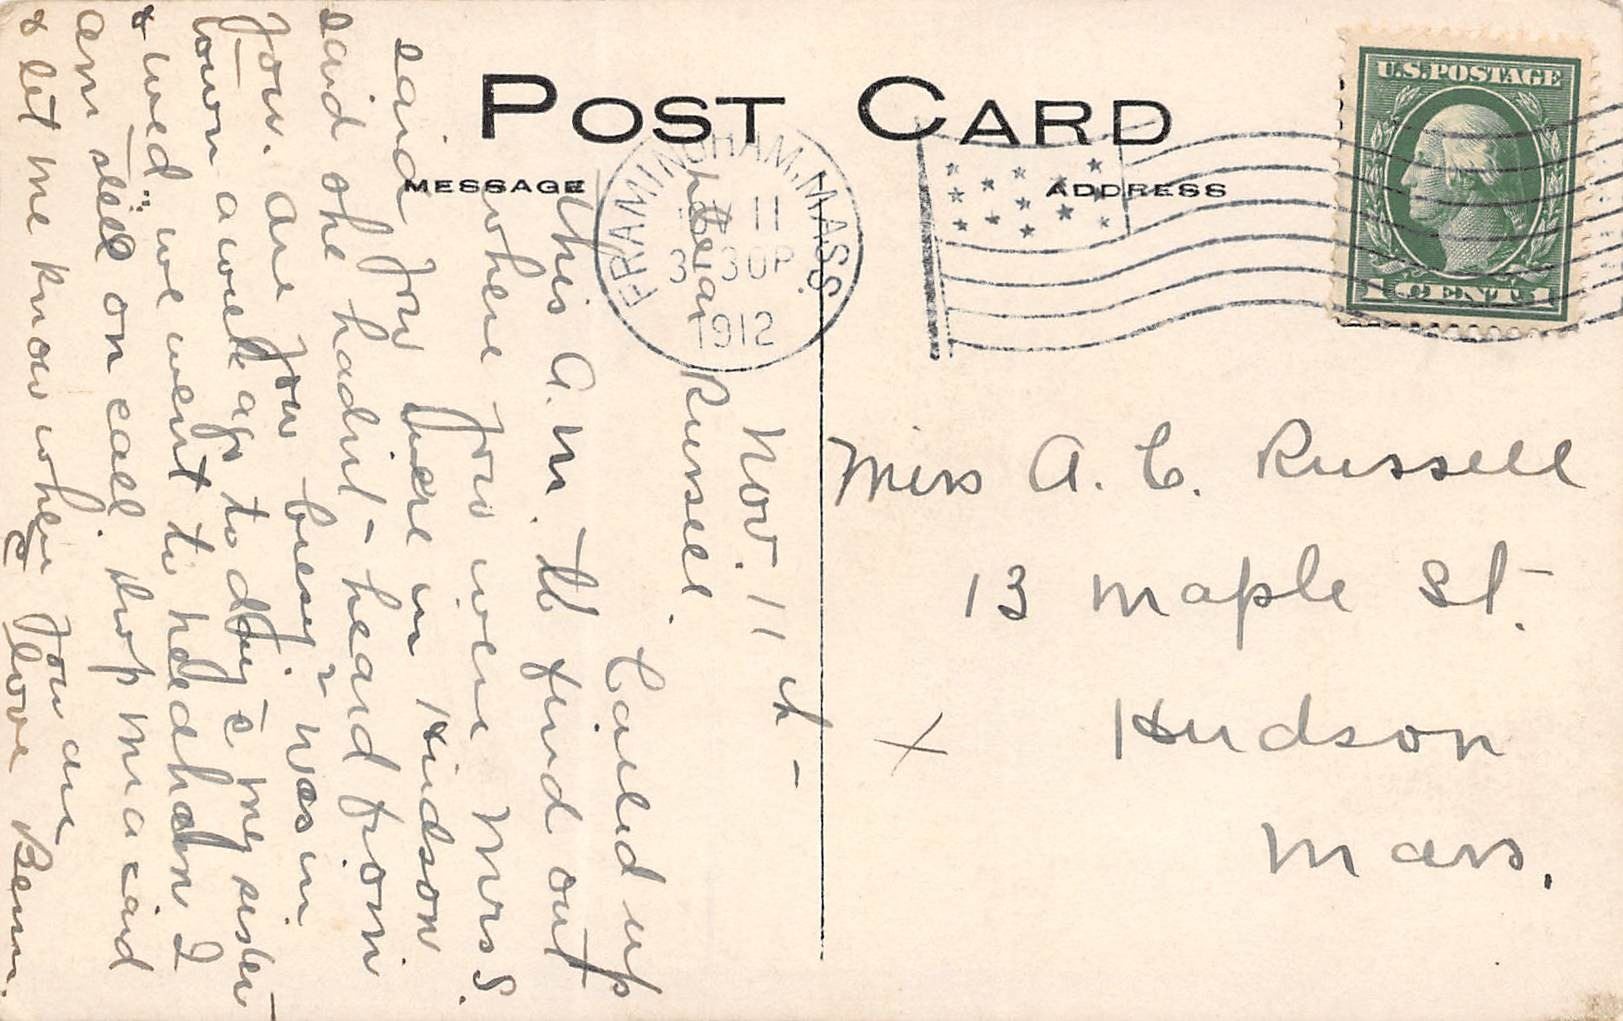 POST CARD
MESSAGE
ADDRESS
U.S. POSTAGE
1 CENT 1
FRAMINGHAM, MASS.
11
3 30P
1912
Nov. 11th –
My dear Russell.
Called up
this a.m. to find out
where you were Mrs S.
said you were in Hudson.
said she hadn't heard from
you. Are you busy? Was in
town a week ago to day c̄ my sister
& Wed. we went to Dedham I
am still on call. Drop me a card
& let me know when you are
c̄ love
Miss A. C. Russell
13 Maple St.
Hudson
x
Mass.